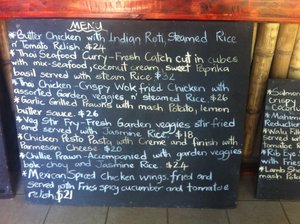 MENU
*Butter Chicken with Indian Roti, Steamed Rice
n Tomato Relish $24
*Thai Seafood Curry-Fresh Catch cut in cubes
with mix-seafood, coconut cream, sweet Paprika
basil served with steam Rice $32
*Thai Chicken-Crispy Wok fried Chicken with
assorted Garden Veggies n steamed Rice $26
*Garlic Grilled Prawns with mash Potato, lemon
butter sauce. $26
*Stir Fry Fresh Garden veggies stir fried
and served with Jasmine Rice $18
*Chicken Pesto Pasta with Creme and finish with
Parmesan Cheese $20
*Chillie Prawn-Accompanied with garden veggies
bok-choy and Jasmine Rice $24
*Mexican Spiced Chicken wings, fried and
served with Fries spicy cucumber and tomatoe
relish $21
*Salmon
crispy
Coconut
*Mahima
Reduc
*Walu Fi
served
to Mash
*Rib Eye
n
*Lamb Sh
mash Potat